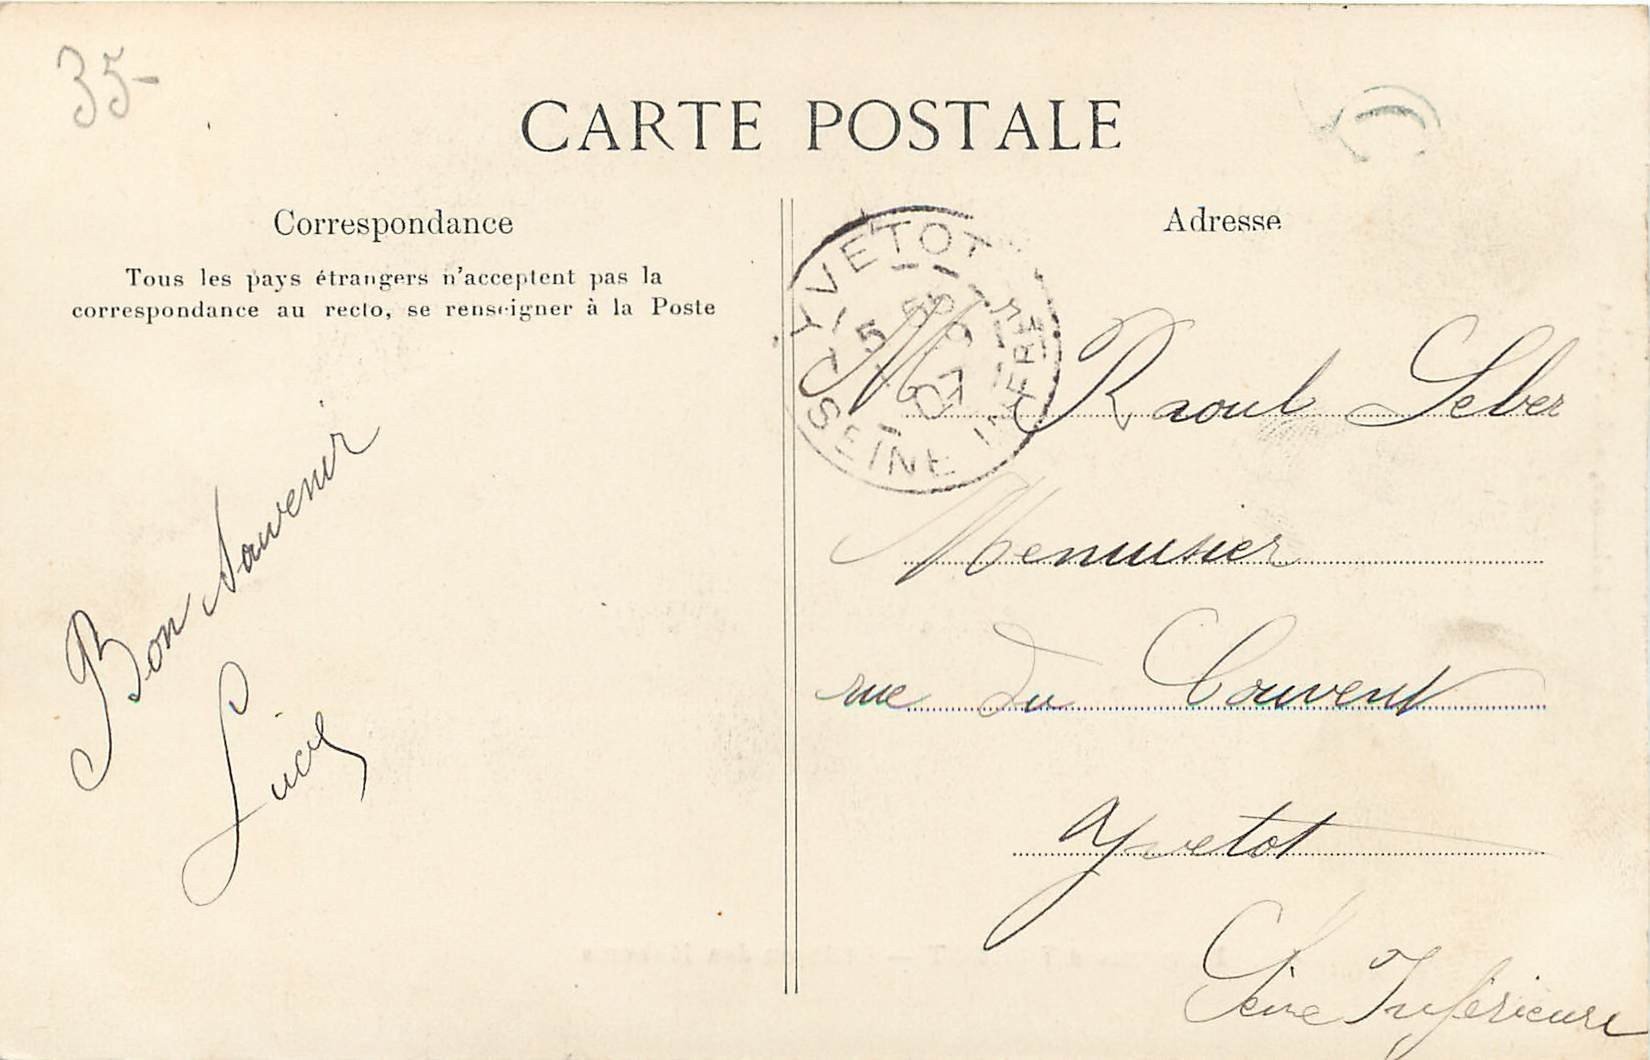 35-
CARTE POSTALE
Correspondance
Tous les pays étrangers n'acceptent pas la
correspondance au recto, se renseigner à la Poste
Bon Souvenir
Lucie
Adresse
YVETOT
5
07
SEINE INFRE
M Raoul Leber
Menuisier
rue du Couvent
Yvetot
Seine Inférieure